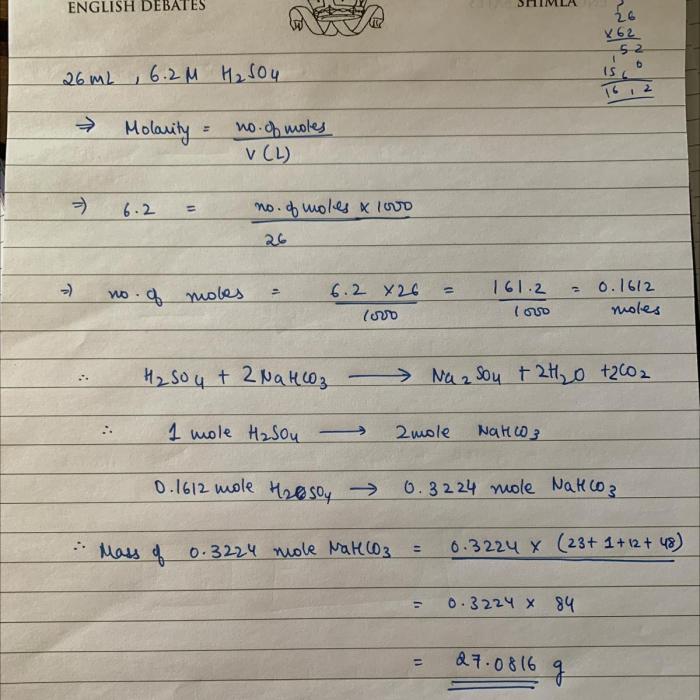 ENGLISH DEBATES
SHIMLA
26
x62
52
1560
1612
26mL , 6.2M H2SO4
⇒ Molarity = no. of moles / V(L)
⇒ 6.2 = no. of moles x 1000 / 26
⇒ no. of moles = 6.2 x26 / 1000 = 161.2 / 1000 = 0.1612 moles
∴ H2SO4 + 2NaHCO3 ⟶ Na2SO4 + 2H2O +2CO2
∴ 1 mole H2SO4 ⟶ 2mole NaHCO3
0.1612 mole H2SO4 → 0.3224 mole NaHCO3
∴ Mass of 0.3224 mole NaHCO3 = 0.3224 x (23+1+12+48)
= 0.3224 x 84
= 27.0816 g